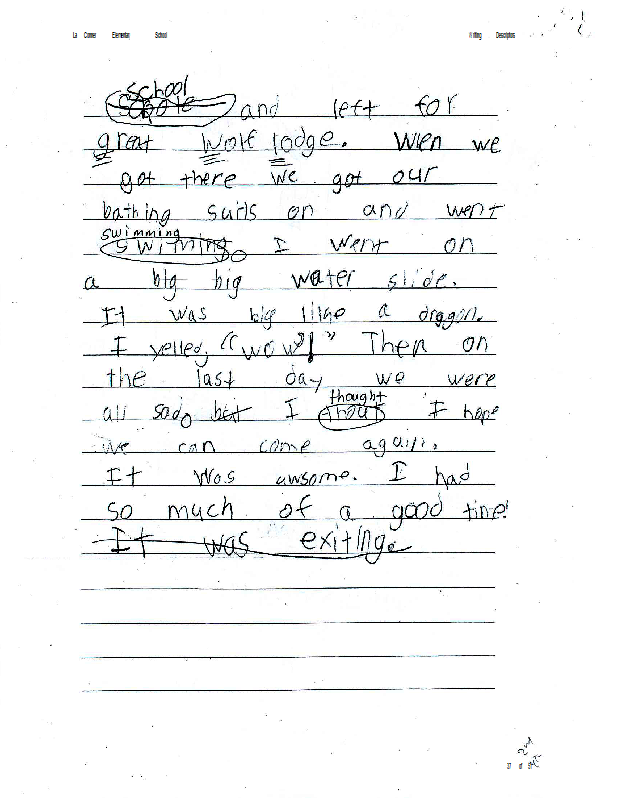 La Conner Elementary School Writing Descriptors
school
and left for
great Wolf lodge. Wien we
got there we got our
bathing suits on and went
swimming
swimming. I went on
a big big water slide.
It was big like a dragon.
I yelled, "wow!" Then on
the last day we were
thought
all sad. but I thout I hope
we can come again.
It was awsome. I had
so much of a good time!
It was exiting.
2nd